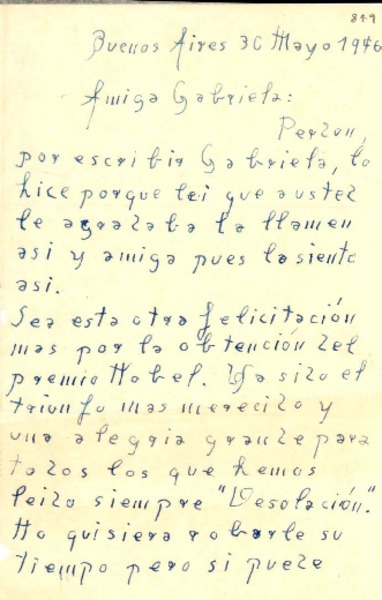 849
Buenos Aires 30 Mayo 1946
Amiga Gabriela:
Perdon,
por escribir Gabriela, lo
hice porque lei que a usted
le agradaba la llamen
asi y amiga pues la siento
asi.
Sea esta otra felicitación
mas por la obtención del
premio Nobel. Ha sido el
triunfo mas merecido y
una alegria grande para
todos los que hemos
leido siempre "Desolación".
No quisiera robarle su
tiempo pero si puede